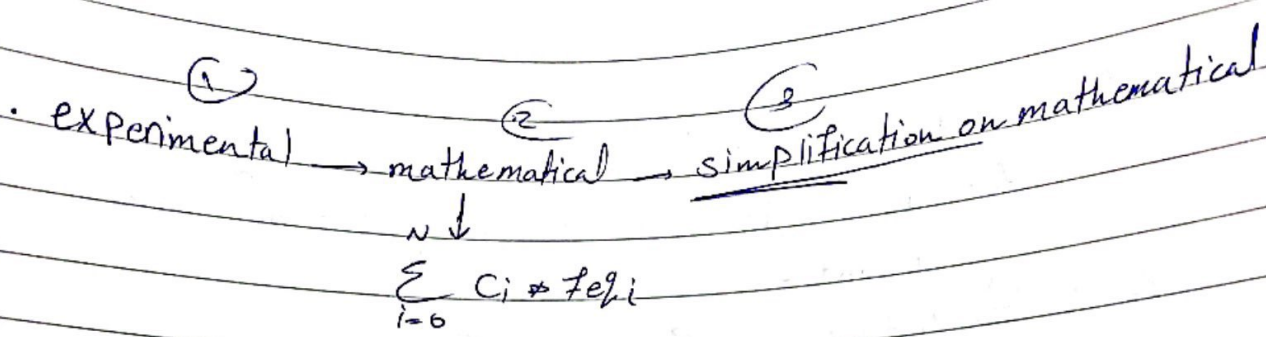 ① ② ③
. experimental → mathematical → simplification on mathematical
↓
N
Σ Ci * feqi
i=0